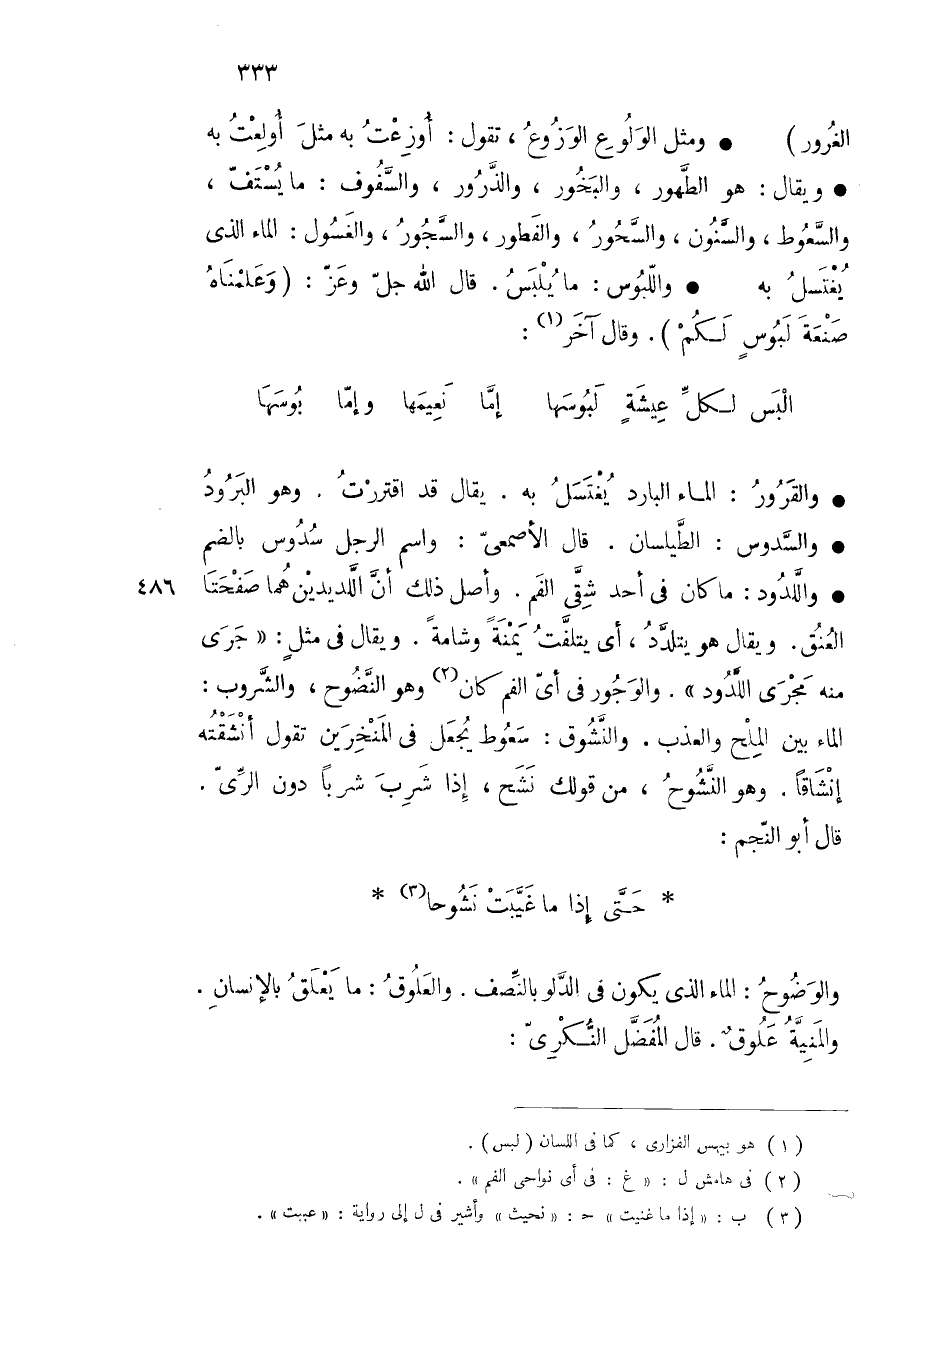 ٣٣٣
الغُرور) ● ومثل الوَلُوعِ الوَزُوعُ ، تقول : أُوزِعْتُ به مثلَ أُولِعْتُ به
● ويقال : هو الطَّهور ، والبَخُور ، والذَّرُور ، والسَّفُوف : ما يُسْتَفّ ،
والسَّعُوط ، والسَّنُون ، والسَّحُورُ ، والفَطور ، والسَّجُورُ ، والغَسُول : الماء الذى
يُغْتَسلُ به ● واللّبُوس : ما يُلْبَسُ . قال الله جلّ وعَزّ : ( وَعَلمْناهُ
صَنْعَةَ لَبُوسٍ لَكُمْ ) . وقال آخَر(١) :
الْبَس لكلِّ عِيشَةٍ لَبُوسَها إمَّا نَعِيمَها وإمّا بُوسَهَا
● والقَرُورُ : الماء البارد يُغْتَسَلُ به . يقال قد اقتررْتُ . وهو البَرُودُ
● والسَّدوس : الطَّيلسان . قال الأصمعىّ : واسم الرجل سُدُوس بالضم
● واللَّدُود : ما كان فى أحد شِقَّىِ الفَم . وأصل ذلك أنَّ اللَّديديْن هُما صَفْحَتَا ٤٨٦
العُنُق . ويقال هو يتلدَّدُ ، أى يتلفّتُ يَمْنَةً وشامةً . ويقال فى مثلٍ : « جَرَى
منه مَجْرَى اللَّدُود » . والوَجُور فى أىّ الفم كان(٢) وهو النَّضُوح ، والشَّروب :
الماء بين المِلْح والعذب . والنَّشُوق : سَعُوط يُجعَل فى المَنْخِرَين تقول أنْشَقْتُه
إنْشَاقاً . وهو النَّشُوحُ ، من قولك نَشَح ، إذا شَرِبَ شرباً دون الرِّىّ .
قال أبو النّجم :
* حَتَّى إذا ما غَيَّبَتْ نَشُوحا(٣) *
والوَضُوحُ : الماء الذى يكون فى الدَّلو بالنِّصف . والعَلُوقُ : ما يَعْلَقُ بالإنسانِ .
والمَنِيَّةُ عَلُوقٌ . قال المُفَضَّل النُّكْرِىّ :
(١) هو بيهس الفزارى ، كما فى اللسان ( لبس ) .
(٢) فى هامش ل : « غ : فى أى نواحى الفم » .
(٣) ب : « إذا ما غنيت » ح : « نحيث » وأشير فى ل إلى رواية : « عببت » .